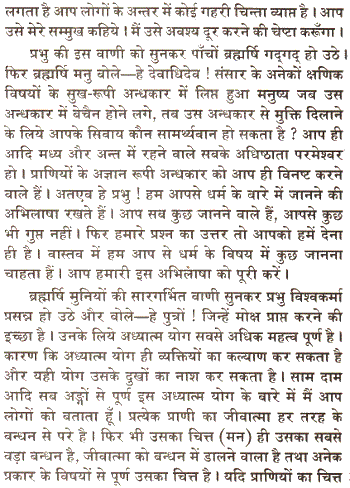 लगता है आप लोगों के अन्तर में कोई गहरी चिन्ता व्याप्त है । आप
उसे मेरे सम्मुख कहिये । मैं उसे अवश्य दूर करने की चेष्टा करूँगा ।
प्रभु की इस वाणी को सुनकर पाँचों ब्रह्मर्षि गद्‌गद् हो उठे ।
फिर ब्रह्मर्षि मनु बोले—हे देवाधिदेव ! संसार के अनेकों क्षणिक
विषयों के सुख-रूपी अन्धकार में लिप्त हुआ मनुष्य जब उस
अन्धकार में बेचैन होने लगे, तब उस अन्धकार से मुक्ति दिलाने
के लिये आपके सिवाय कौन सामर्थ्यवान हो सकता है ? आप ही
आदि मध्य और अन्त में रहने वाले सबके अधिष्ठाता परमेश्वर
हो । प्राणियों के अज्ञान रूपी अन्धकार को आप ही विनष्ट करने
वाले हैं । अतएव हे प्रभु ! हम आपसे धर्म के बारे में जानने की
अभिलाषा रखते हैं । आप सब कुछ जानने वाले हैं, आपसे कुछ
भी गुप्त नहीं । फिर हमारे प्रश्न का उत्तर तो आपको हमें देना
ही है । वास्तव में हम आप से धर्म के विषय में कुछ जानना
चाहता हैं । आप हमारी इस अभिलाषा को पूरी करें ।
ब्रह्मर्षि मुनियों की सारगर्भित वाणी सुनकर प्रभु विश्वकर्मा
प्रसन्न हो उठे और बोले—हे पुत्रों ! जिन्हें मोक्ष प्राप्त करने की
इच्छा है । उनके लिये अध्यात्म योग सबसे अधिक महत्व पूर्ण है ।
कारण कि अध्यात्म योग ही व्यक्तियों का कल्याण कर सकता है
और यही योग उसके दुखों का नाश कर सकता है । साम दाम
आदि सब अङ्गों से पूर्ण इस अध्यात्म योग के बारे में मैं आप
लोगों को बताता हूँ । प्रत्येक प्राणी का जीवात्मा हर तरह के
बन्धन से परे है । फिर भी उसका चित्त (मन) ही उसका सबसे
बड़ा बन्धन है, जीवात्मा को बन्धन में डालने वाला है तथा अनेक
प्रकार के विषयों से पूर्ण उसका चित्त है । यदि प्राणियों का चित्त